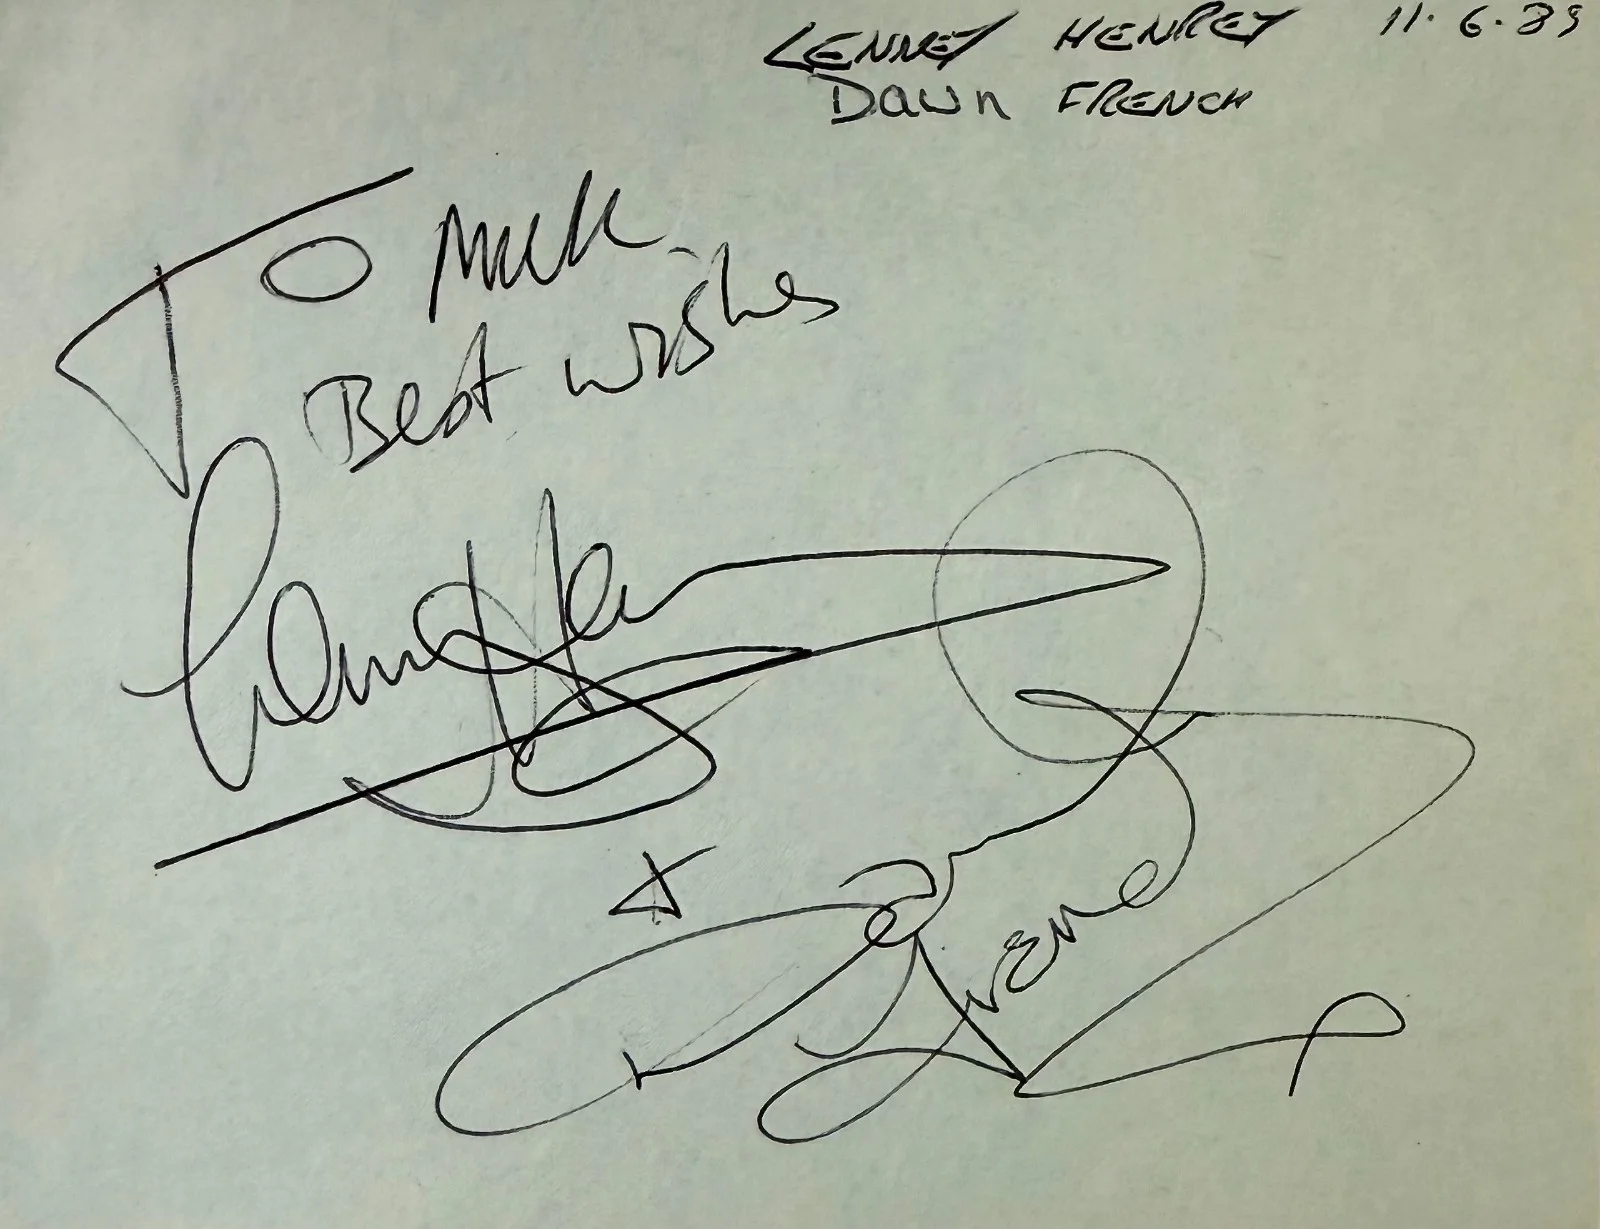 LENNEY HENREY 11.6.89
Dawn FRENCH
TO Mick
Best wishes
Lenny Hen
+
Dawn French